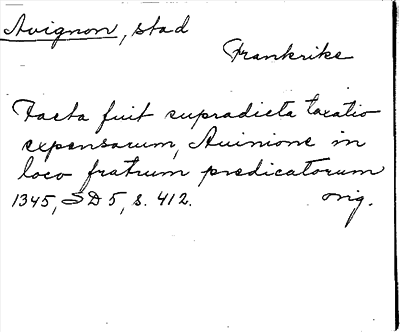 Avignon, stad
Frankrike
Facta fuit supradicta taxatio
expensarum, Auinione in
loco fratrum predicatorum
1345, SD 5, s. 412. orig.